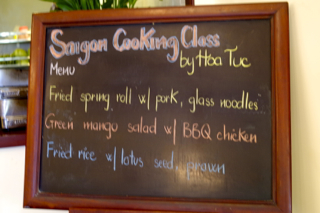 Saigon Cooking Class
by Hoa Tuc
Menu
Fried spring roll w/ pork, glass noodles
Green mango salad w/ BBQ chicken
Fried rice w/ lotus seed, prawn